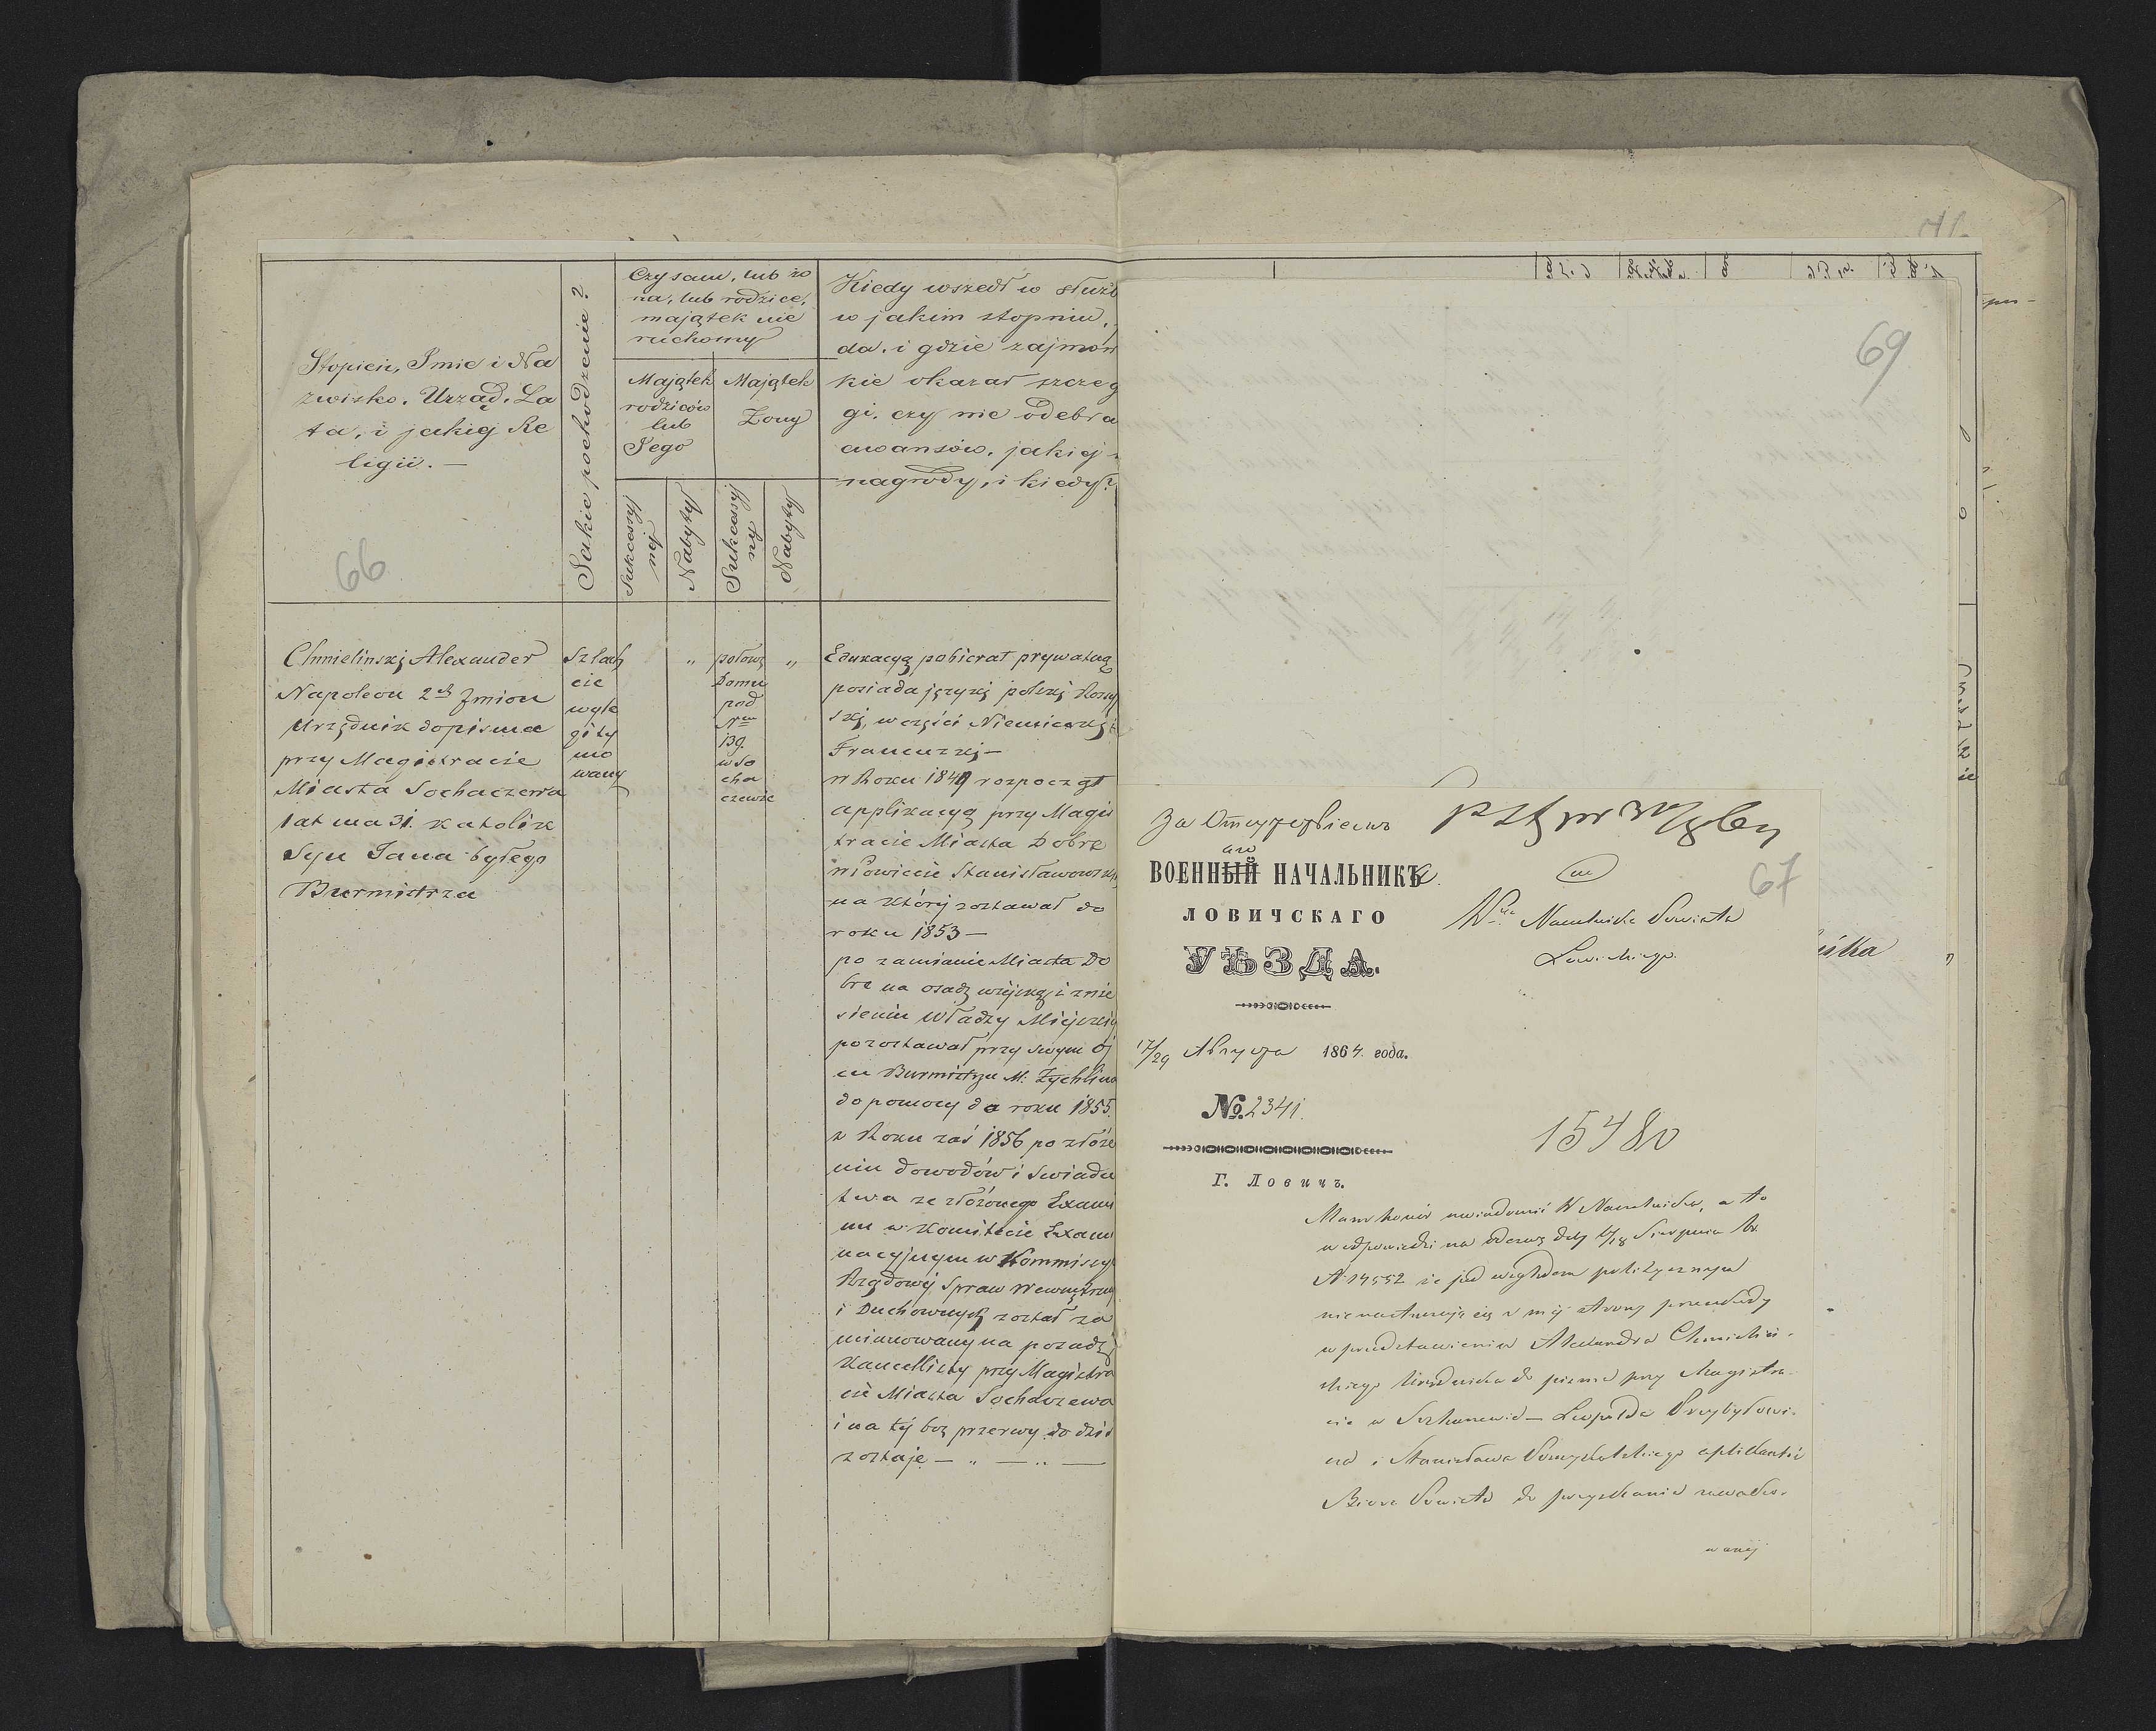 Stopień, Imie i Na
zwisko. Urząd. La
ta, i jakiej Re
ligii. —
66
Jakie pochodzenie?
Czy sam, lub żo
na, lub rodzice,
majątek nie
ruchomy
Majątek
rodziców
lub
Jego
Majątek
Żony
Sukcessyj
ny
Nabyty
Sukcessyj
ny
Nabyty
Kiedy wszedł w służb
w jakim stopniu,
da. i gdzie zajmow
kie okazał szczeg
gi. czy nie odebra
awansów. jakiej
nagrody, i kiedy?
Chmielinskj Alexander
Napoleon 2ch Jmion
Urzędnik do pisma
przy Magistracie
Miasta Sochaczewa
lat ma 31. katolik
Syn Jana byłego
Burmistrza
Szlach
cic
wyle
gity
mo
wany
"
połowę
Domu
pod
Nrm
139.
w So
cha
czewie
"
Edukacyą pobierał prywatną
posiada języki polski Rossy
skj, w części Niemieckj i
Francuzkj —
W Roku 1849 rozpoczął
applikacyą przy Magis
tracie Miasta Dobre
w Powiecie Stanisławowskj
na którj zostawał do
roku 1853 —
po zamianie Miasta Do
bre na osadę wiejską i znie
sieniu Władzy Miejskiej
pozostawał przy swym Oj
cu Burmistrzu M: Żychlina
do pomocy do roku 1855.
z Roku zaś 1856 po złóże
niu dowodów i swiadec
twa ze złóżonego Exami
nu w Komitecie Exami
nacyjnym w Kommissyi
Rządowej Spraw Wewnętrzny
i Duchownych został za
mianowany na posadę
Kancellisty przy Magistra
cie Miasta Sochaczewa
i na tej bez przerwy do dziś
zostaje — " — " —
69
За Отсутствіемъ
ВОЕННЫЙ аго НАЧАЛЬНИКЪ а.
ЛОВИЧСКАГО
УѢЗДА.
17/29 Августа 1864. года.
№. 2341.
Г. Ловичъ.
67
do
Wgo Naczelnika Powiatu
Łowickiego.
15480
Mam honor uwiadomić W Naczelnika, a to
w odpowiedzi na odezwę daty 6/18 Sierpnia br.
N 14552 że pod względem politycznym
nie nastręczają się z mej strony przeszkody
w przedstawieniu Alexandra Chmieliń-
skiego Urzędnika do pisma przy Magistra-
cie w Sochaczewie — Leopolda
i Stanisława aplikantów
Biura Powiatu do pozyskania